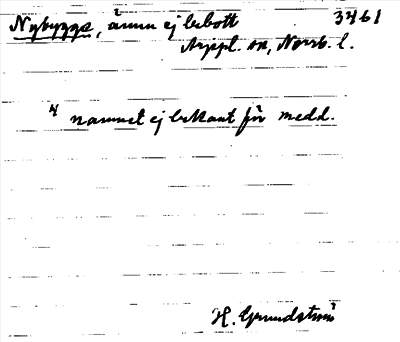 Nybygge, ännu ej bebott 3461
Arjepl. sn, Norrb. l.
4 namnet ej bekant för medd.
H. Grundström